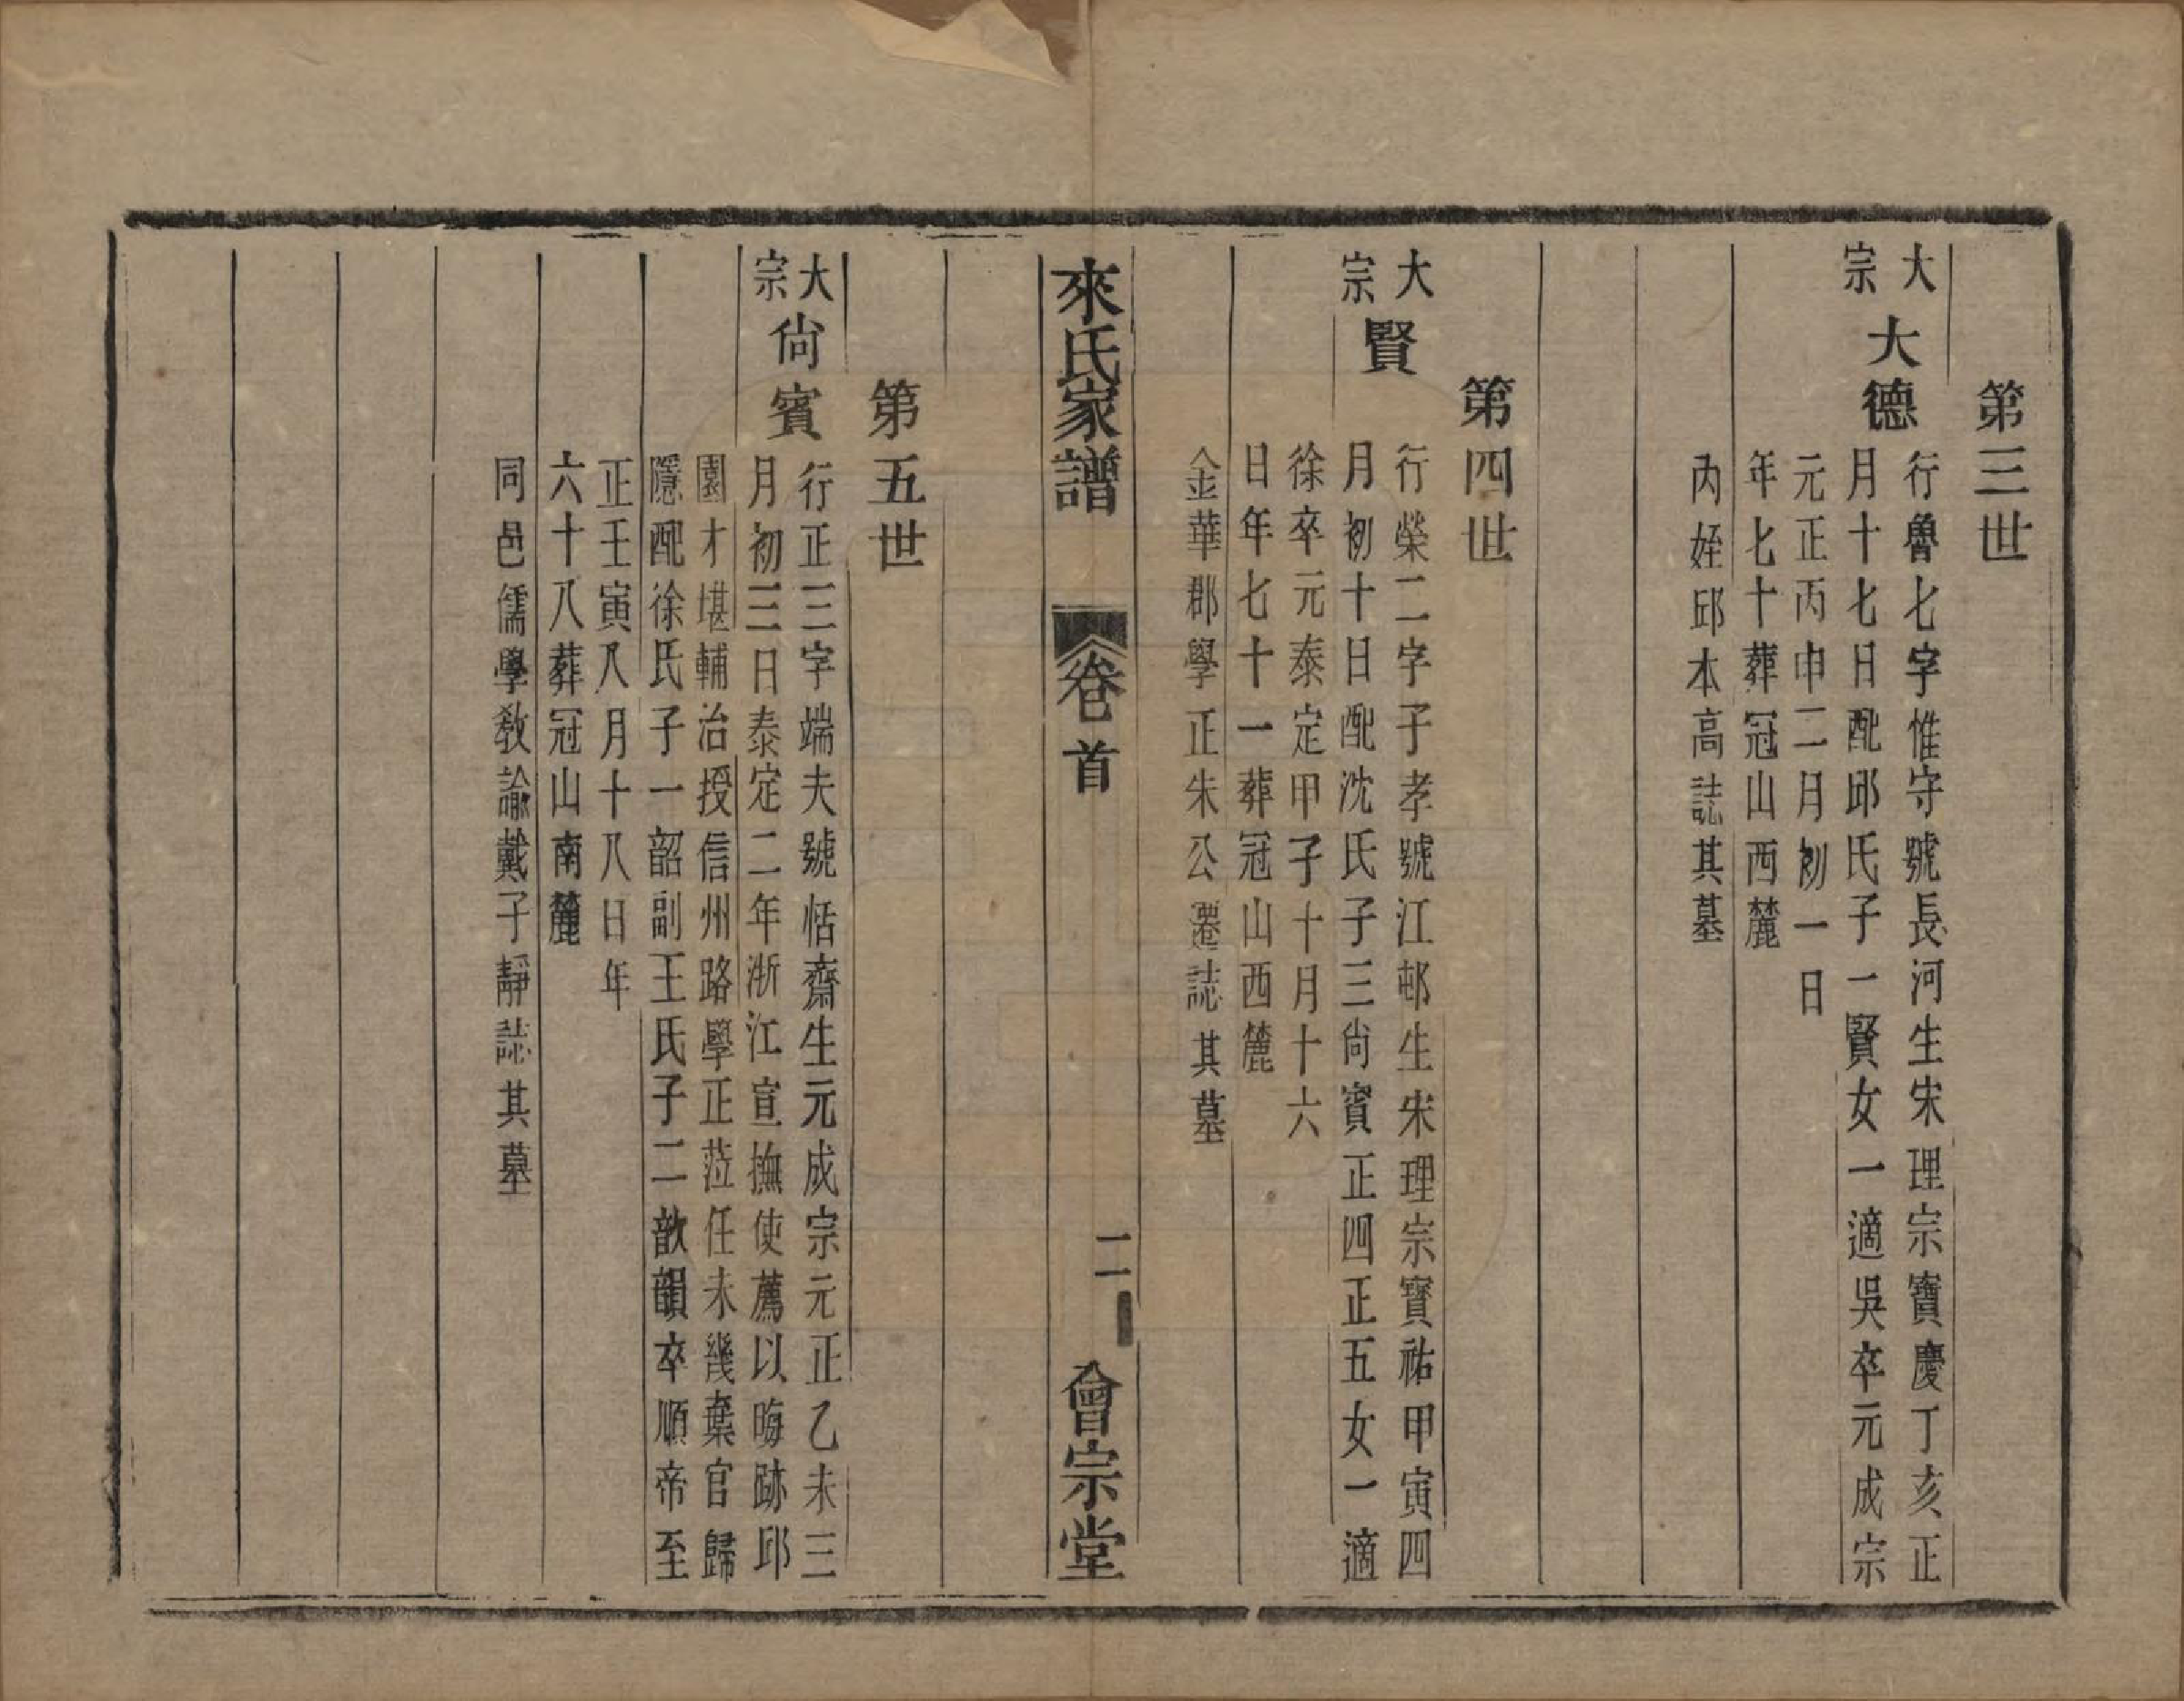 第三世
大宗
大德
行魯七字惟守號長河生宋理宗寶慶丁亥正
月十七日配邱氏子一賢女一適吳卒元成宗
元正丙申二月初一日
年七十葬冠山西麓
內姪邱本高誌其墓
第四世
大宗
賢
行榮二字子孝號江邨生宋理宗寶祐甲寅四
月初十日配沈氏子三尙賓正四正五女一適
徐卒元泰定甲子十月十六
日年七十一葬冠山西麓
金華郡學正朱公遷誌其墓
來氏家譜
卷首
二
會宗堂
第五世
大宗
尙賓
行正三字端夫號恬齋生元成宗元正乙未三
月初三日泰定二年浙江宣撫使薦以晦跡邱
園才堪輔治授信州路學正蒞任未幾棄官歸
隱配徐氏子一韶副王氏子二歆韻卒順帝至
正壬寅八月十八日年
六十八葬冠山南麓
同邑儒學敎諭戴子靜誌其墓